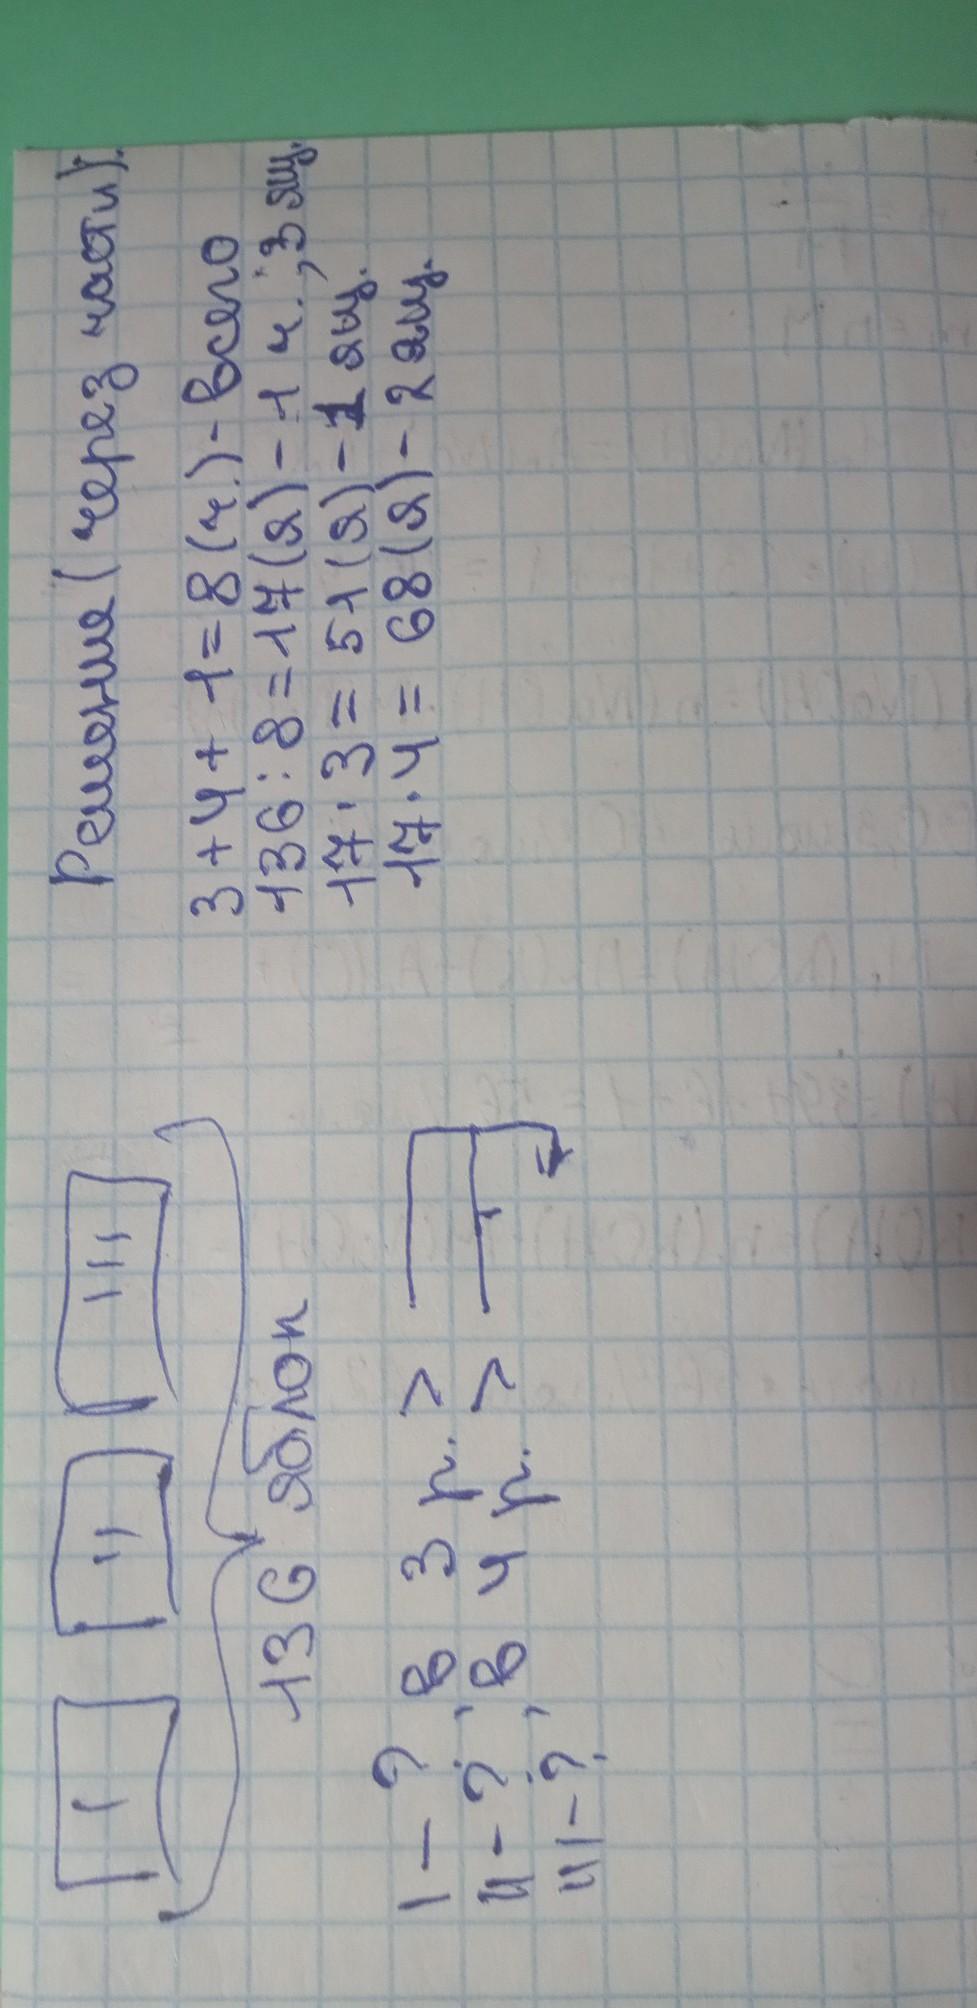 I II III
136 яблок
I - ?, в 3 р. >
II - ?, в 4 р. >
III - ?
Решение (через части).
3 + 4 + 1 = 8 (ч.) - всего
136 : 8 = 17 (я) - 1 ч., 3 ящ.
17 · 3 = 51 (я) - 1 ящ.
17 · 4 = 68 (я) - 2 ящ.